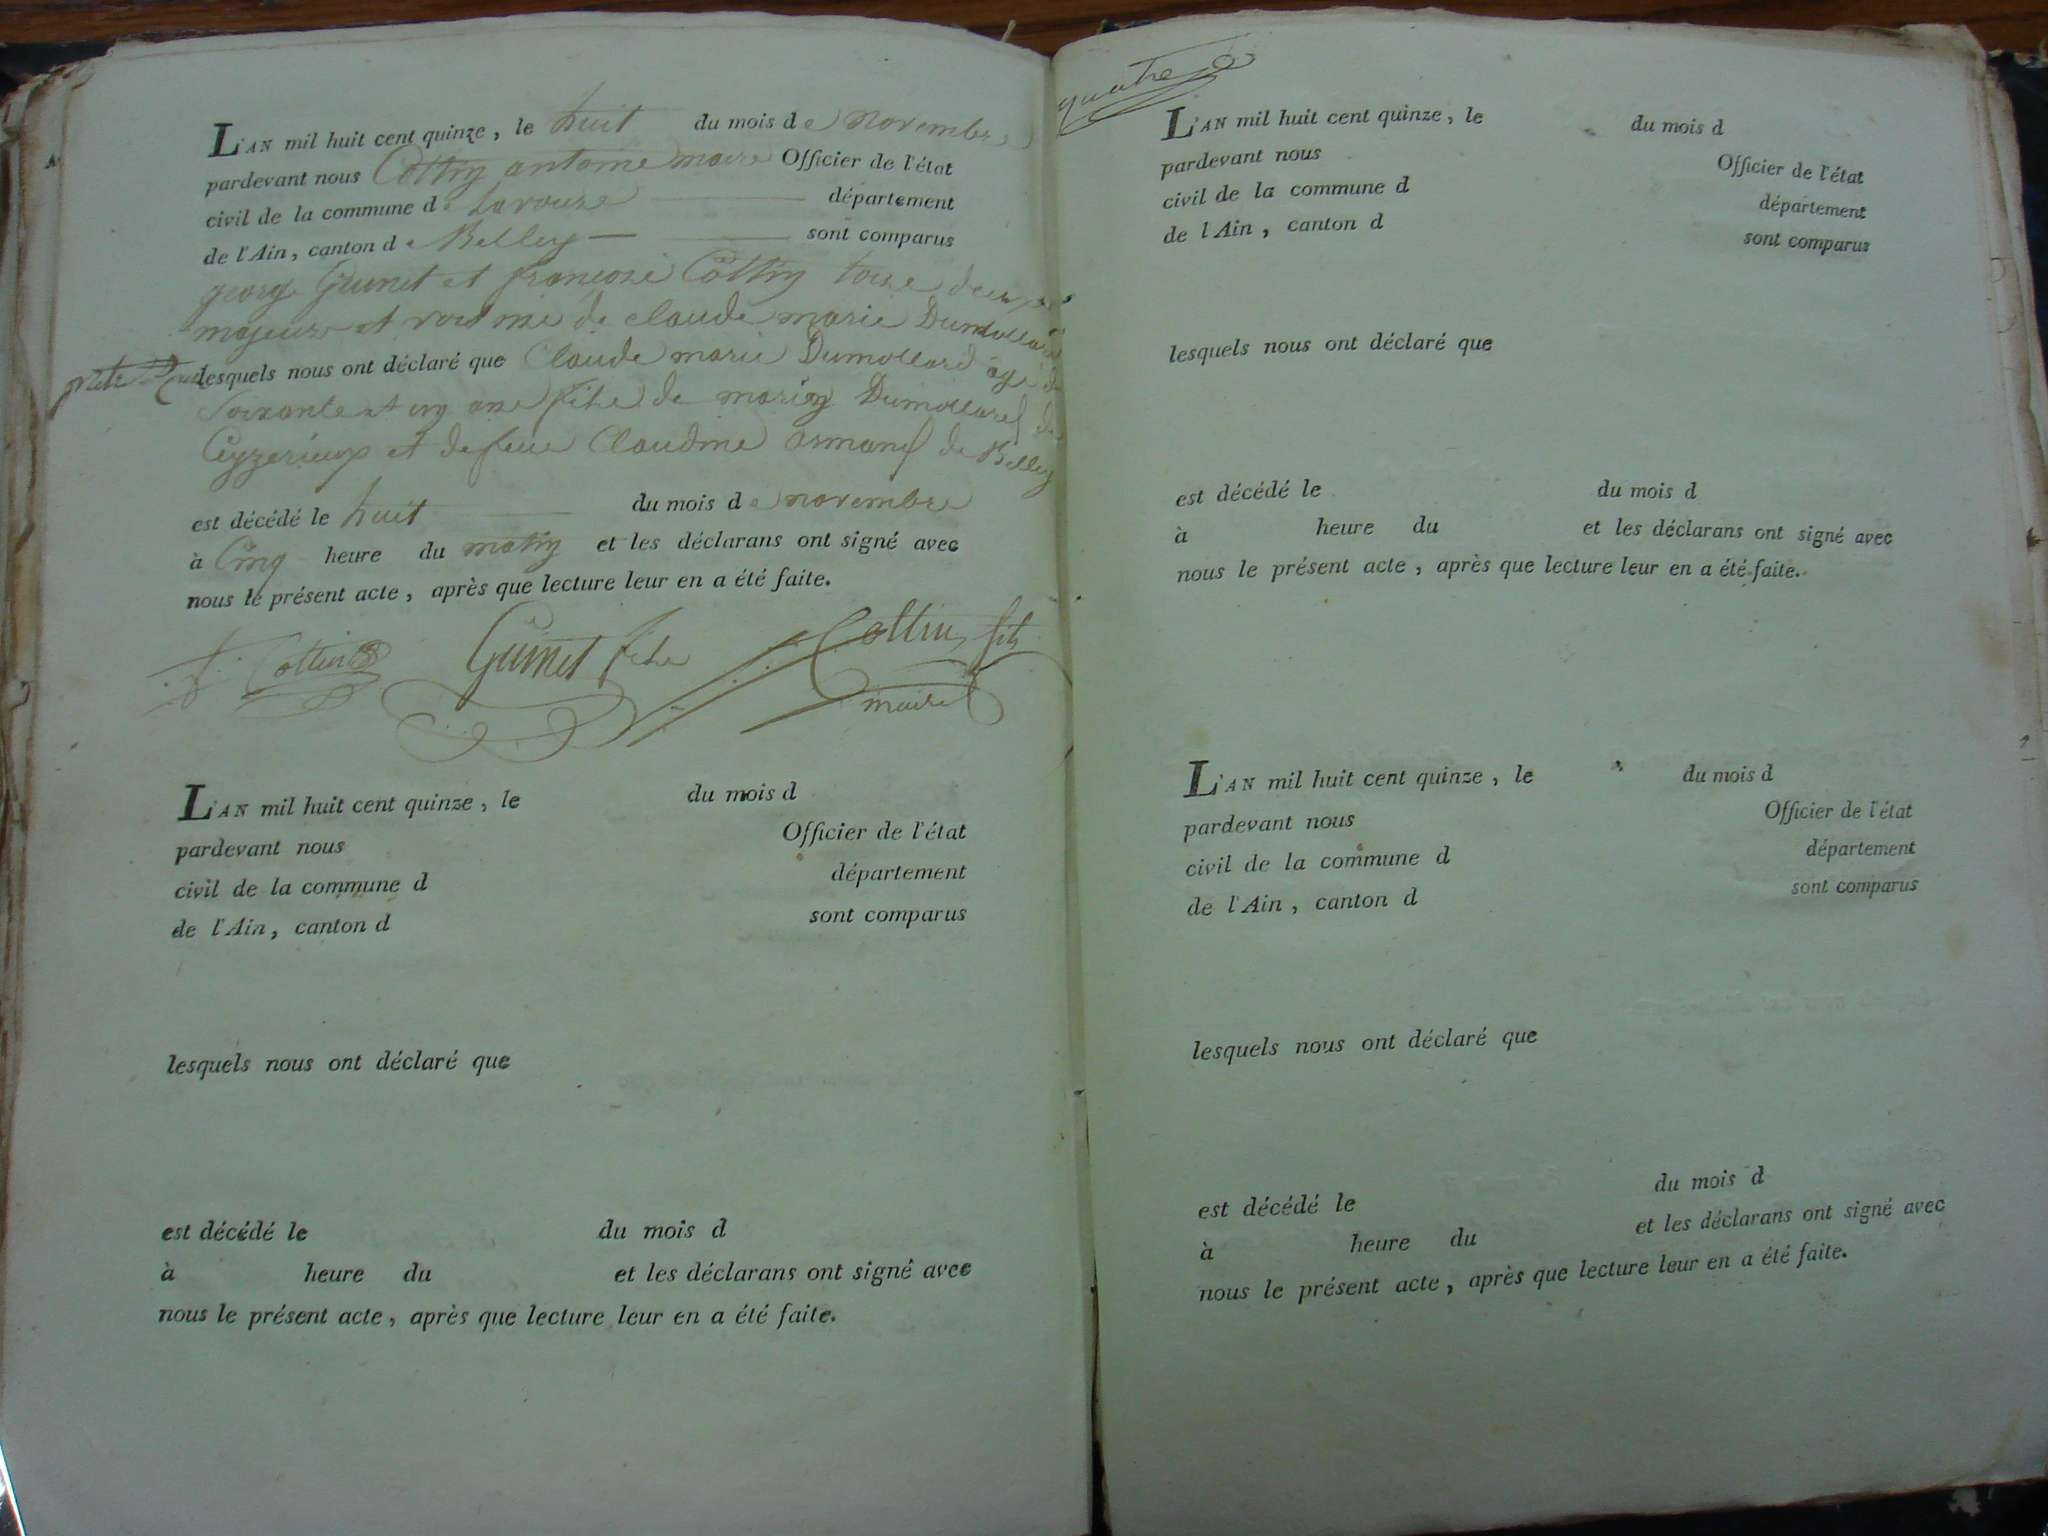 L'AN mil huit cent quinze, le huit du mois de novembre
pardevant nous Cottin antoine maire Officier de l'état
civil de la commune de Lavouse département
de l'Ain, canton de Belley sont comparus
george Guinet et françoise Cottin tous deux
majeurs et voisins de claude marie Dumollard
lesquels nous ont déclaré que Claude marie Dumollard agé de
Soixante et un ans fils de Dumollard de
Ceyzerieux et de feue Claudine armand de Belley
est décédé le huit du mois de novembre
à Cinq heure du matin et les déclarans ont signé avec
nous le présent acte, après que lecture leur en a été faite.
f. Cottin Guinet fils Cottin fils
maire
L'AN mil huit cent quinze, le du mois d
pardevant nous Officier de l'état
civil de la commune d département
de l'Ain, canton d sont comparus
lesquels nous ont déclaré que
est décédé le du mois d
à heure du et les déclarans ont signé avec
nous le présent acte, après que lecture leur en a été faite.
quatre
L'AN mil huit cent quinze, le du mois d
pardevant nous Officier de l'état
civil de la commune d département
de l'Ain, canton d sont comparus
lesquels nous ont déclaré que
est décédé le du mois d
à heure du et les déclarans ont signé avec
nous le présent acte, après que lecture leur en a été faite.
L'AN mil huit cent quinze, le du mois d
pardevant nous Officier de l'état
civil de la commune d département
de l'Ain, canton d sont comparus
lesquels nous ont déclaré que
est décédé le du mois d
à heure du et les déclarans ont signé avec
nous le présent acte, après que lecture leur en a été faite.